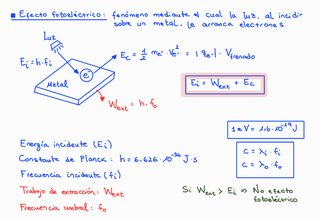 ▪ Efecto fotoeléctrico: fenómeno mediante el cual la luz, al incidir
sobre un metal, le arranca electrones.
Luz
Ei = h·fi
e⁻
Metal
Ec = 1/2 me·Ve² = |qe⁻|·Vfrenado
Wext = h·fo
Ei = Wext + Ec
1eV = 1.6·10⁻¹⁹ J
c = λi·fi
c = λo·fo
Energía incidente (Ei)
Constante de Planck: h = 6.626·10⁻³⁴ J·s
Frecuencia incidente (fi)
Trabajo de extracción: Wext
Frecuencia umbral: fo
Si Wext > Ei ⇒ No efecto
fotoeléctrico